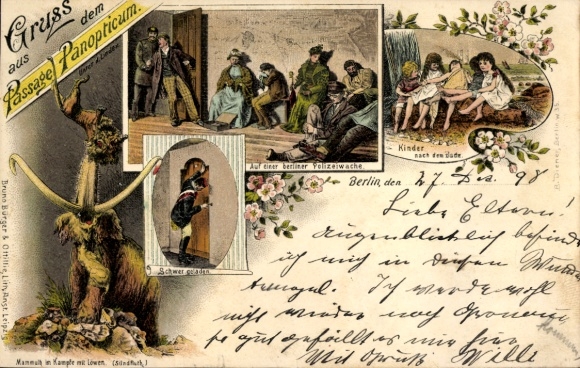 Gruss
aus dem
Passage Panopticum.
Unter d. Linden
Auf einer berliner Polizeiwache.
Kinder
nach dem Bade.
Schwer geladen.
Mammuth im Kampfe mit Löwen. (Sündfluth.)
Bruno Bürger & Ottillie, Lith. Anst. Leipzig
Berlin, den 27. 98
Liebe Eltern!
Augenblicklich befinde
ich mich in diesem Wunder
tempel. Ich werde wohl
nicht wieder nach
so gut gefällt es mir hier
Mit Gruß Willi